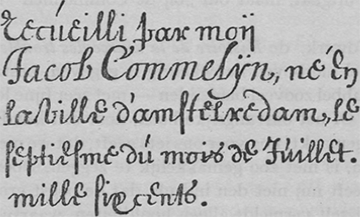 recúeilli par moÿ
Jacob Commelÿn, né én
la ville d'amstelredam, le
septiesme dú mois de Júillet.
mille six cents.